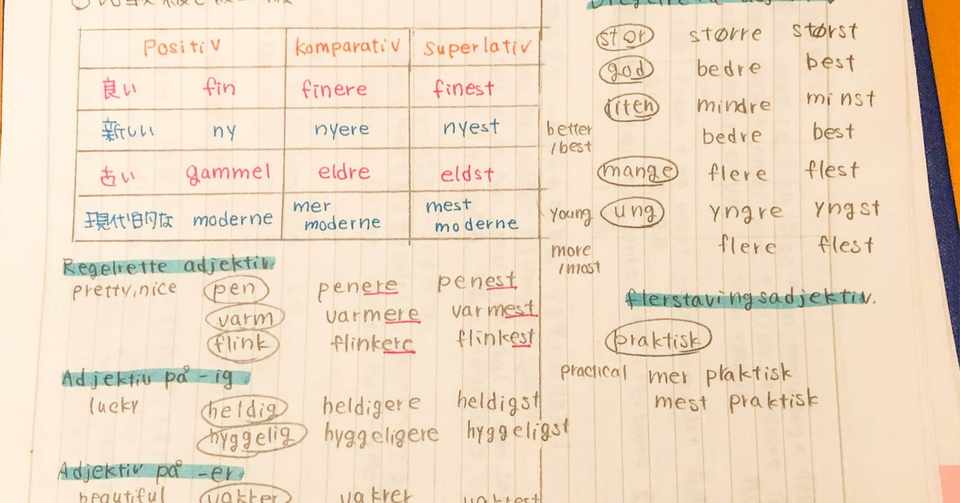 Positiv komparativ superlativ
良い fin finere finest
新しい ny nyere nyest
古い gammel eldre eldst
現代的な moderne mer moderne mest moderne
Regelrette adjektiv.
pretty, nice pen penere penest
varm varmere varmest
flink flinkere flinkest
Adjektiv på -ig
lucky heldig heldigere heldigst
hyggelig hyggeligere hyggeligst
Adjektiv på -er
beautiful vakker vakrer vakrest
stor større størst
god bedre best
liten mindre minst
better /best bedre best
mange flere flest
young ung yngre yngst
more /most flere flest
flerstavingsadjektiv.
praktisk
practical mer praktisk
mest praktisk